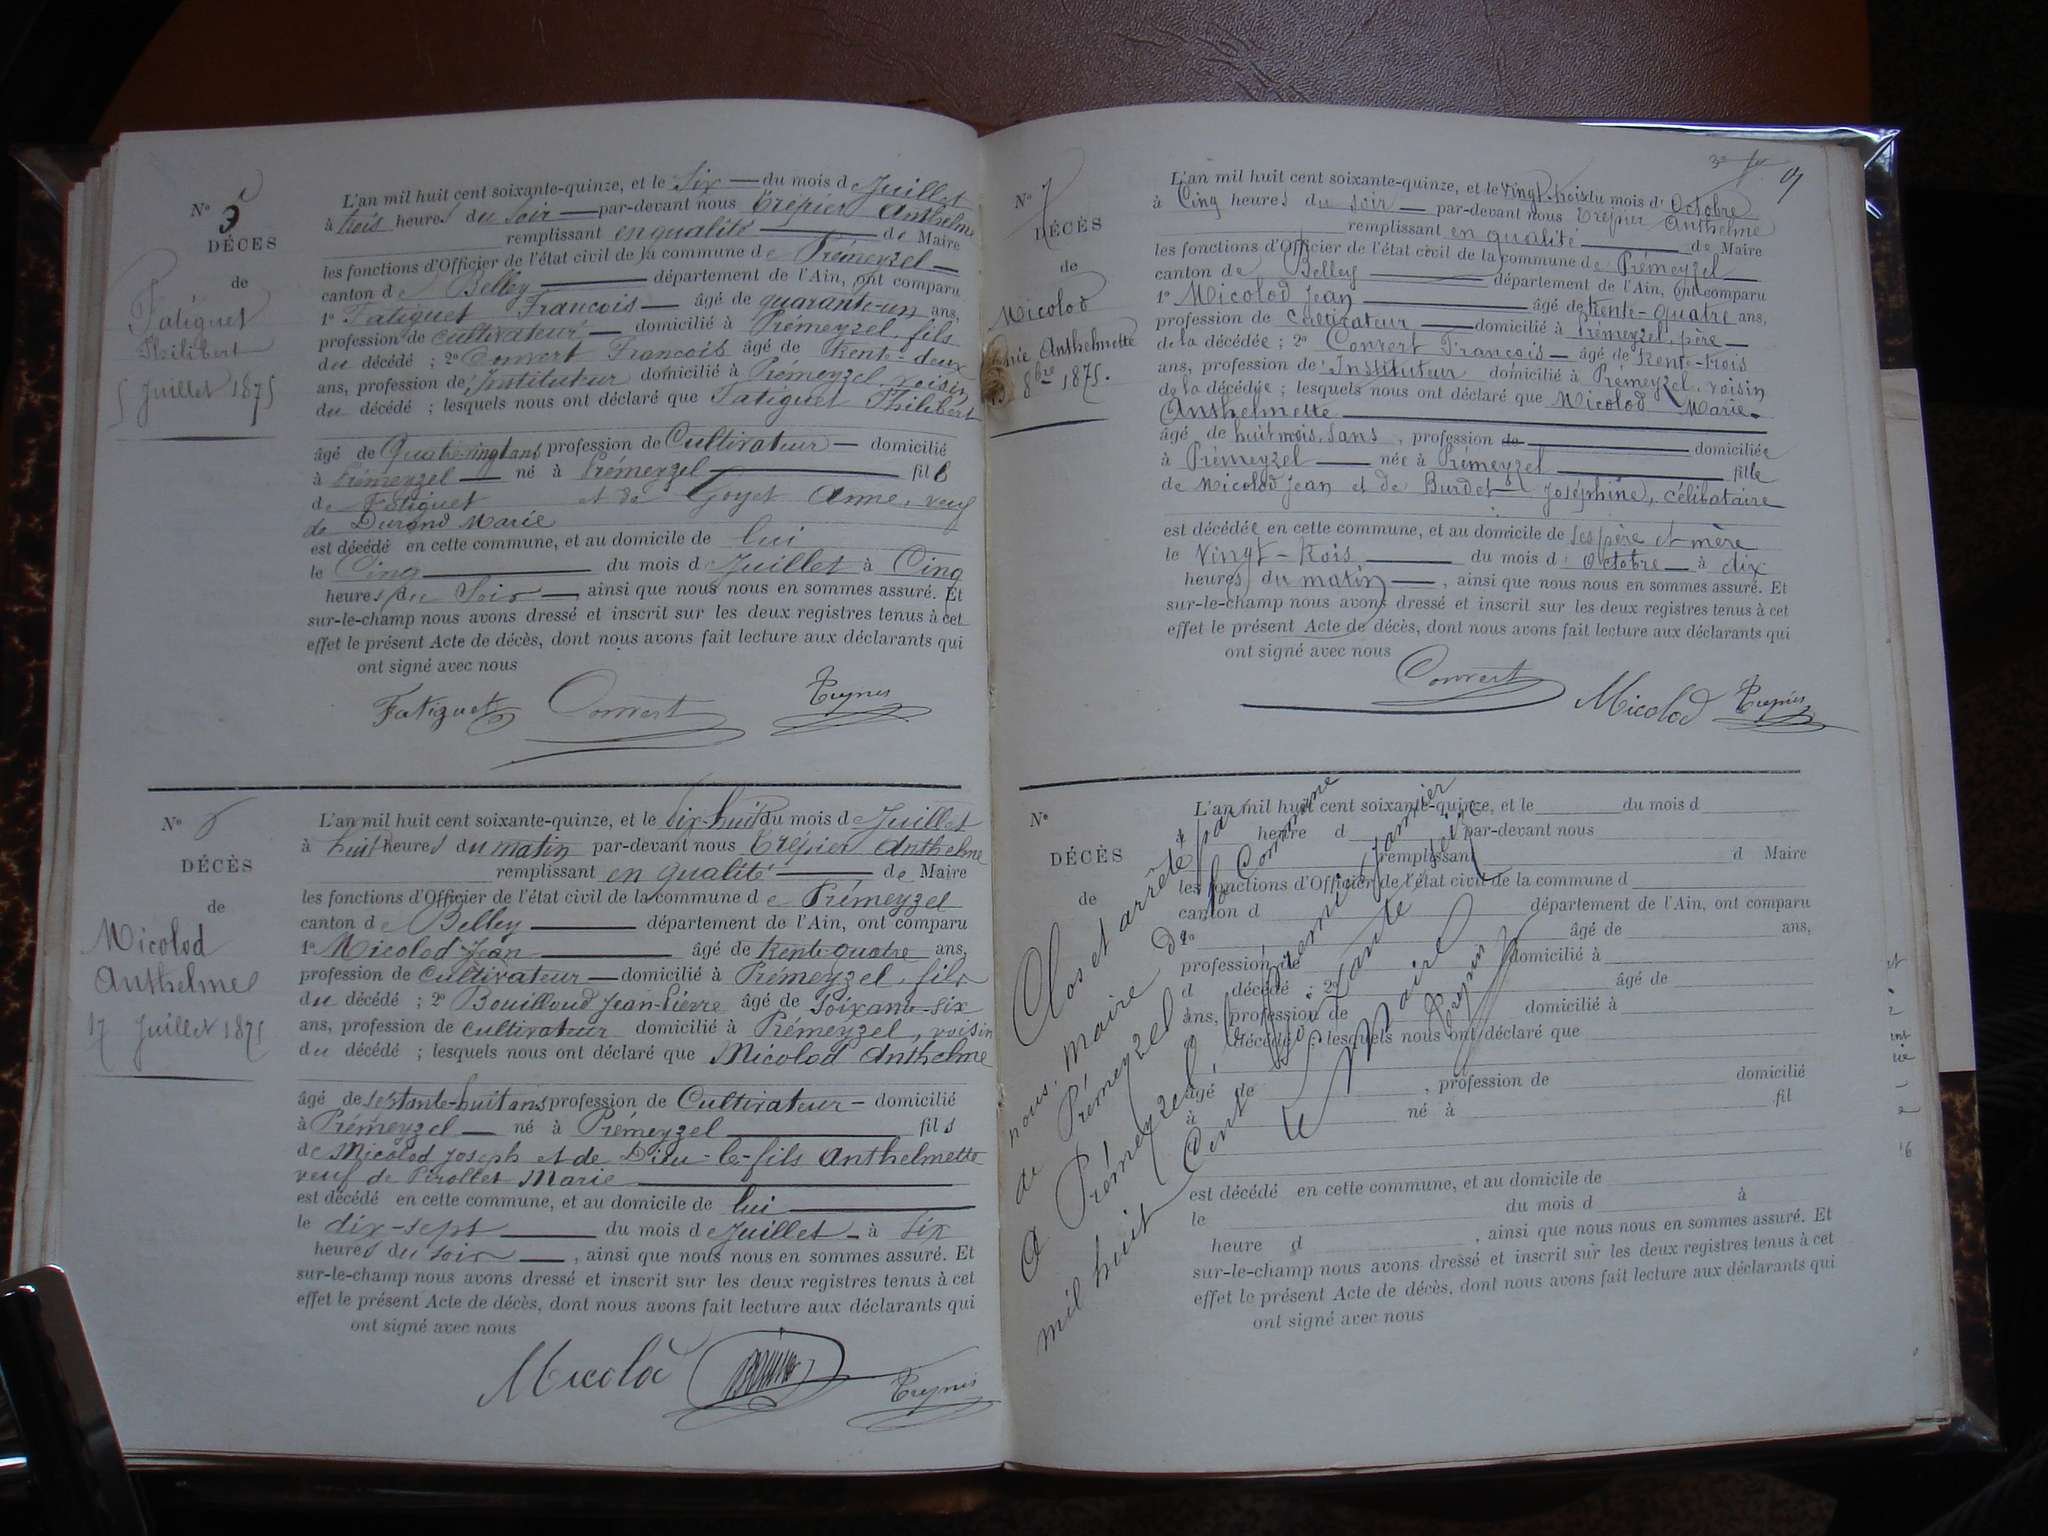 N° 5
DÉCÈS
de
Fatiguet
Philibert
5 Juillet 1875
L'an mil huit cent soixante-quinze, et le Six du mois de Juillet
à trois heures du soir par-devant nous Trépier Anthelme
remplissant en qualité de Maire
les fonctions d'Officier de l'état civil de la commune de Prémeyzel
canton de Belley département de l'Ain, ont comparu
1° Fatiguet François âgé de quarante-un ans,
profession de cultivateur domicilié à Prémeyzel, fils
du décédé ; 2° Convert François âgé de trente-deux
ans, profession de Instituteur domicilié à Prémeyzel, voisin
du décédé ; lesquels nous ont déclaré que Fatiguet Philibert
âgé de Quatre-vingt ans profession de Cultivateur domicilié
à Prémeyzel né à Prémeyzel fils
de Fatiguet et de Goyet Anne, veuf
de Durand Marie
est décédé en cette commune, et au domicile de lui
le Cinq du mois de Juillet à Cinq
heures du Soir, ainsi que nous nous en sommes assuré. Et
sur-le-champ nous avons dressé et inscrit sur les deux registres tenus à cet
effet le présent Acte de décès, dont nous avons fait lecture aux déclarants qui
ont signé avec nous
Fatiguet Convert Trépier
N° 6
DÉCÈS
de
Micolod
Anthelme
17 Juillet 1875
L'an mil huit cent soixante-quinze, et le dix-huit du mois de Juillet
à huit heures du matin par-devant nous Trépier Anthelme
remplissant en qualité de Maire
les fonctions d'Officier de l'état civil de la commune de Prémeyzel
canton de Belley département de l'Ain, ont comparu
1° Micolod Jean âgé de trente-quatre ans,
profession de cultivateur domicilié à Prémeyzel, fils
du décédé ; 2° Bouilloud Jean-Pierre âgé de soixante-six
ans, profession de cultivateur domicilié à Prémeyzel, voisin
du décédé ; lesquels nous ont déclaré que Micolod Anthelme
âgé de septante-huit ans profession de Cultivateur domicilié
à Prémeyzel né à Prémeyzel fils
de Micolod Joseph et de Dieu-le-fils Anthelmette
veuf de Pirollet Marie
est décédé en cette commune, et au domicile de lui
le dix-sept du mois de Juillet à six
heures du soir, ainsi que nous nous en sommes assuré. Et
sur-le-champ nous avons dressé et inscrit sur les deux registres tenus à cet
effet le présent Acte de décès, dont nous avons fait lecture aux déclarants qui
ont signé avec nous
Micolod Trépier
N° 7
DÉCÈS
de
Micolod
Anthelmette
8bre 1875.
L'an mil huit cent soixante-quinze, et le vingt-trois du mois d'Octobre
à Cinq heures du soir par-devant nous Trépier Anthelme
remplissant en qualité de Maire
les fonctions d'Officier de l'état civil de la commune de Prémeyzel
canton de Belley département de l'Ain, ont comparu
1° Micolod Jean âgé de trente-quatre ans,
profession de cultivateur domicilié à Prémeyzel, père
de la décédée ; 2° Convert François âgé de trente-trois
ans, profession de Instituteur domicilié à Prémeyzel, voisin
de la décédée ; lesquels nous ont déclaré que Micolod Marie-
Anthelmette
âgé de huit mois, sans, profession de domiciliée
à Prémeyzel née à Prémeyzel fille
de Micolod Jean et de Burdet Joséphine, célibataire
est décédée en cette commune, et au domicile de ses père et mère
le Vingt-trois du mois d'Octobre à dix
heures du matin, ainsi que nous nous en sommes assuré. Et
sur-le-champ nous avons dressé et inscrit sur les deux registres tenus à cet
effet le présent Acte de décès, dont nous avons fait lecture aux déclarants qui
ont signé avec nous
Convert Micolod Trépier
N°
DÉCÈS
de
L'an mil huit cent soixante-quinze, et le du mois d
à heure d par-devant nous
remplissant d Maire
les fonctions d'Officier de l'état civil de la commune d
canton d département de l'Ain, ont comparu
1° âgé de ans,
profession de domicilié à
d décédé ; 2° âgé de
ans, profession de domicilié à
d décédé ; lesquels nous ont déclaré que
âgé de , profession de domicilié
à né à fil
est décédé en cette commune, et au domicile de
le du mois d à
heure d , ainsi que nous nous en sommes assuré. Et
sur-le-champ nous avons dressé et inscrit sur les deux registres tenus à cet
effet le présent Acte de décès, dont nous avons fait lecture aux déclarants qui
ont signé avec nous
Clos et arrêté par
nous, Maire de la Commune
de Prémeyzel
A Prémeyzel, le premier janvier
mil huit cent soixante seize
le Maire
Trépier